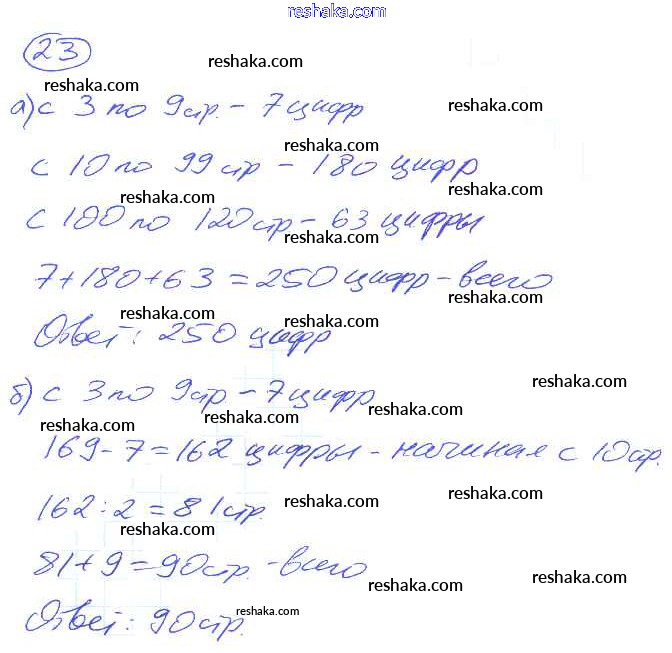 reshaka.com
23
reshaka.com reshaka.com
а) с 3 по 9 стр. – 7 цифр reshaka.com
reshaka.com
с 10 по 99 стр – 180 цифр
reshaka.com reshaka.com
с 100 по 120 стр – 63 цифры
reshaka.com
7+180+63 = 250 цифр – всего
reshaka.com reshaka.com reshaka.com
Ответ: 250 цифр
reshaka.com
б) с 3 по 9 стр – 7 цифр
reshaka.com reshaka.com reshaka.com
169 – 7 = 162 цифры – начиная с 10 стр.
162 : 2 = 81 стр.
reshaka.com reshaka.com reshaka.com
81 + 9 = 90 стр. – всего
reshaka.com reshaka.com
Ответ: 90 стр.
reshaka.com